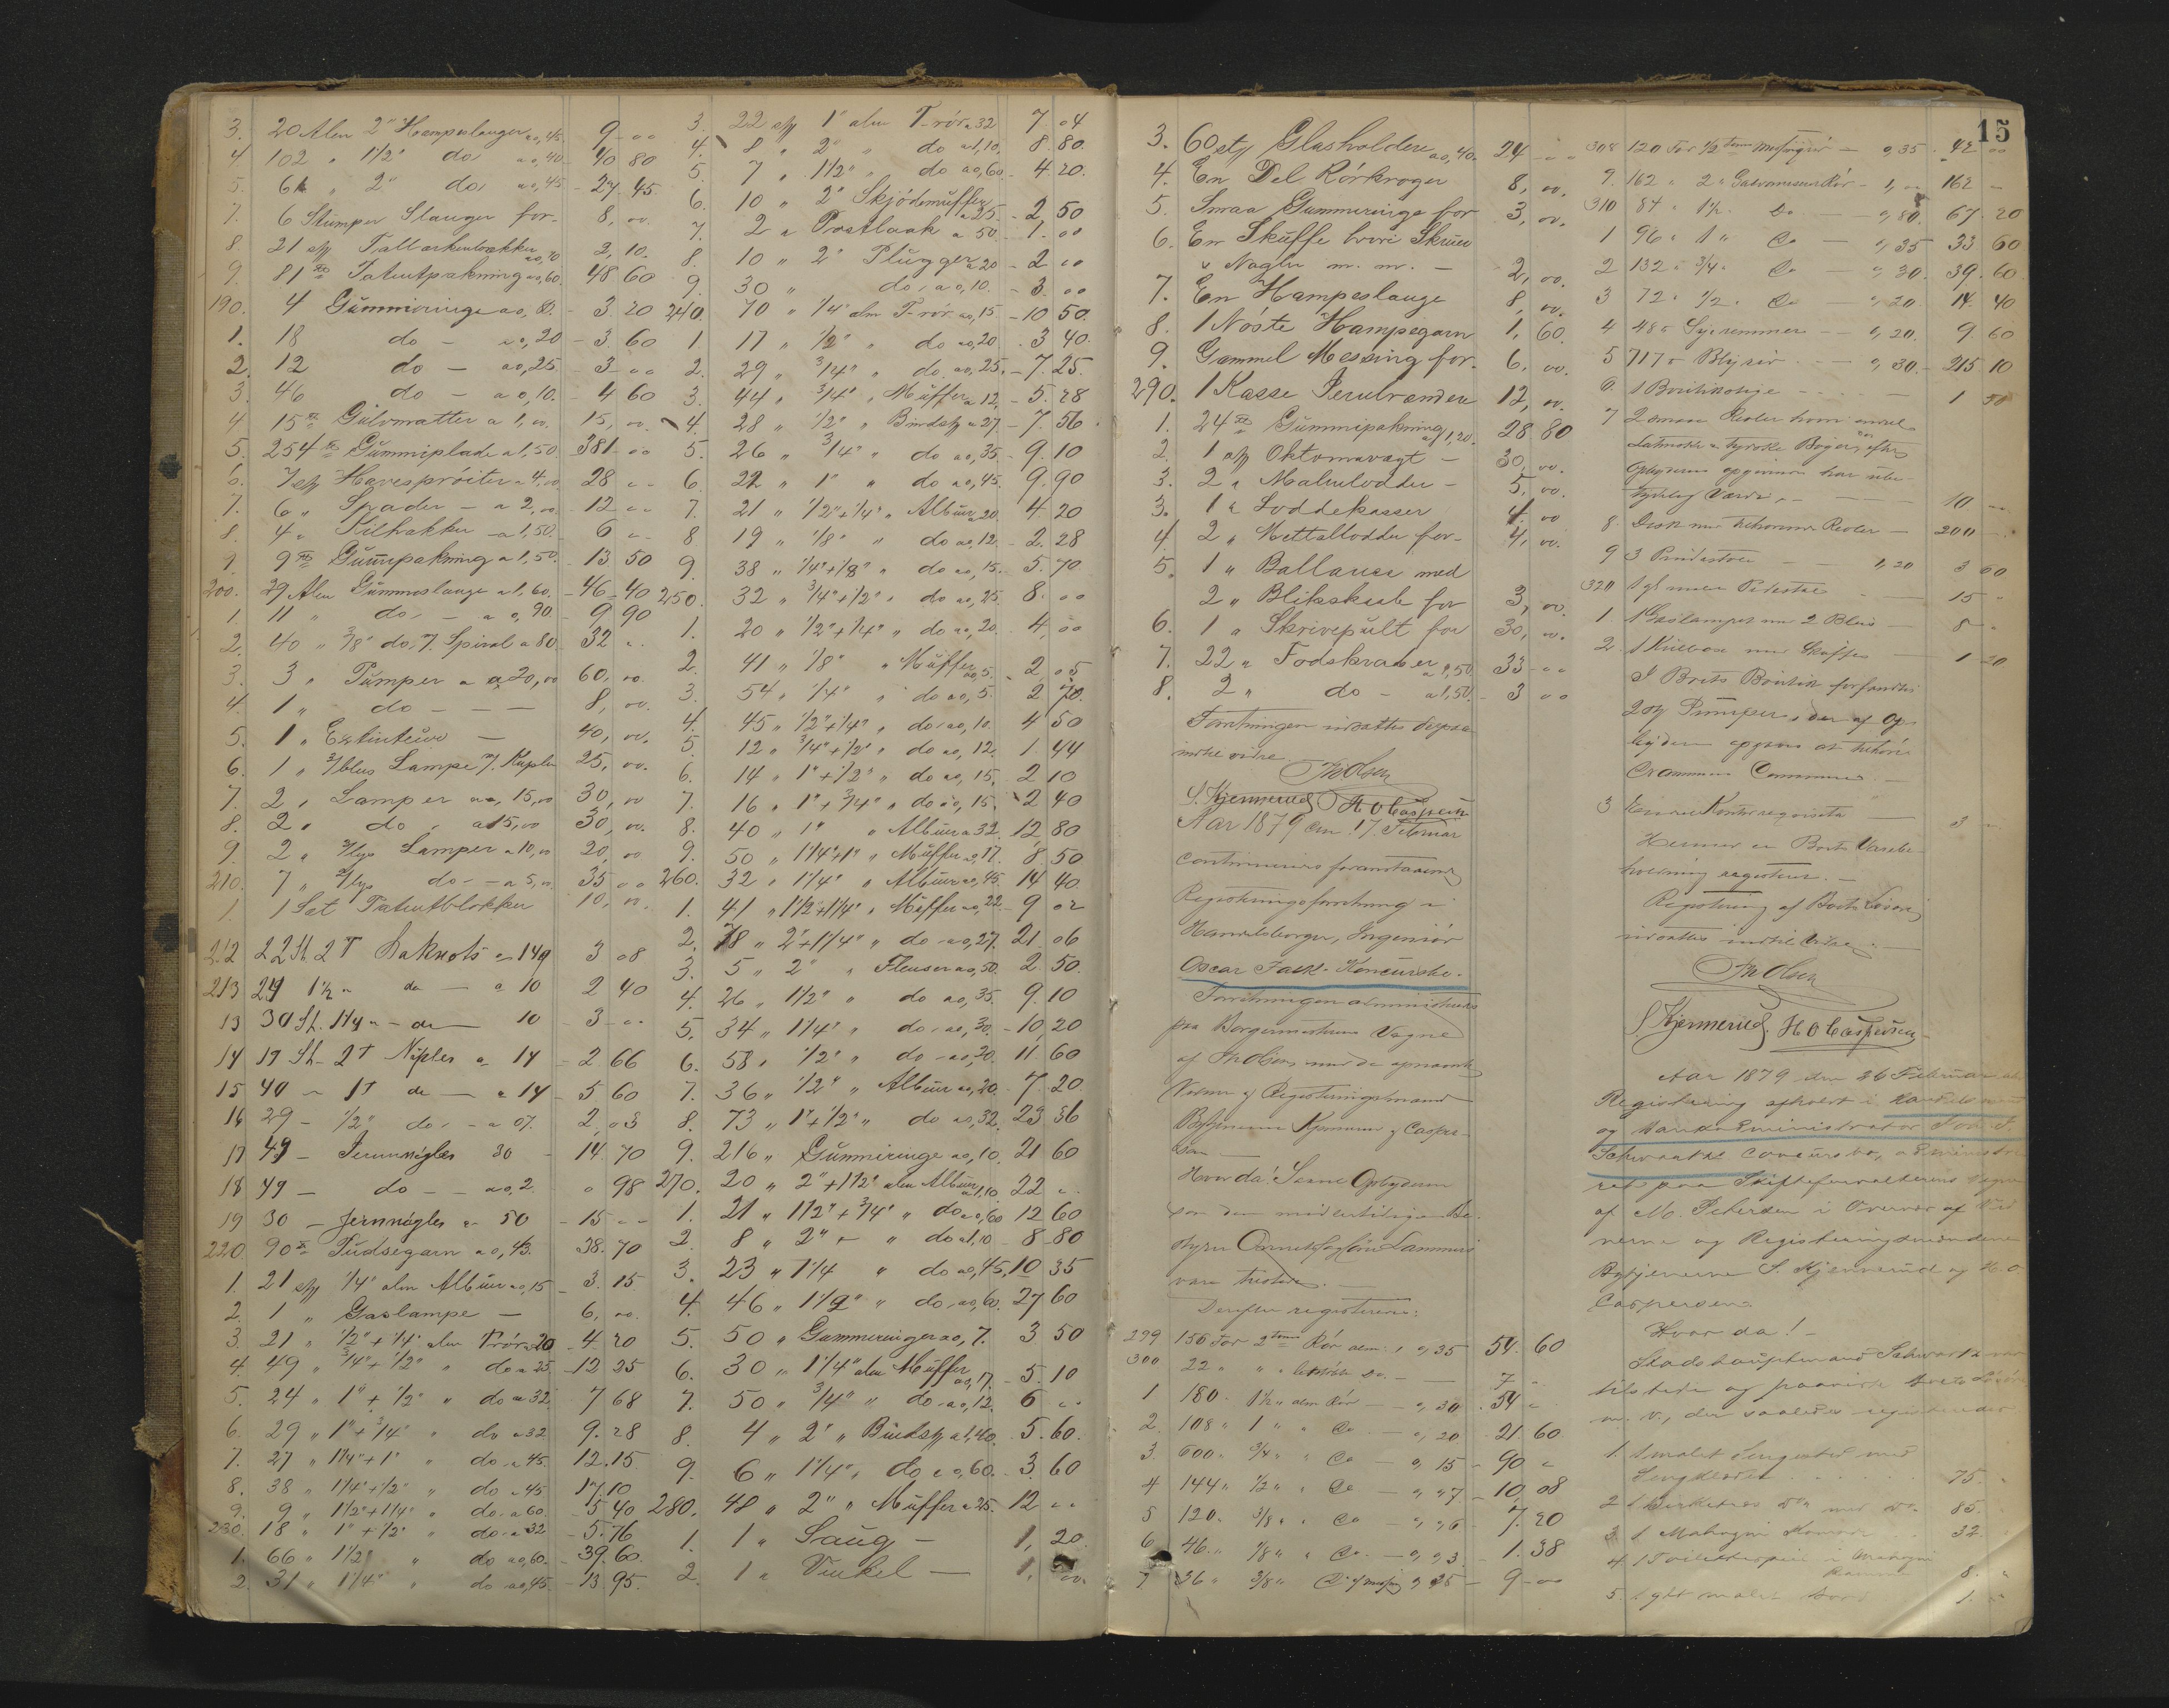 3. 20 Alen 2" Hampeslanger a 0,45. 9 - 00
4 102 " 1 1/2" do a 0,40 40 80
5. 61 " 2" do a 0,45 27. 45.
7. 6 Stumper Slanger for - 8, 00.
8 21 sty 2, 10.
9. 81 Patentpakning a 0,60. 48 60
190. 4 Gummiringe a 0,80. 3. 20
1. 18 do - a 0,20 3. 60
2. 12 do - a 0,25 3 - 00
3. 46 do - a 0,10. 4 60
4 15 Gulvmatter a 1,00. 15, 00.
5. 254 Gummiplade a 1,50 381 - 00
6. 7 sty Havesprøiter a 4,00 28 " "
7. 6 " Spader - a 2,00 12 " "
8. 4 " Pilhakker a 1,50. 6 " "
9. 9 Gummipakning a 1,50. 13 50
200. 29 Alen Gummislange a 1,60. 46 - 40
1. 11 " do - a 0,90 9 90
2. 40 " 3/8" do, Spiral a 80. 32 "
3. 3 " Pumper a 20,00 60, 00.
4. 1 " do - - - 8, 00.
5. 1 " Extinteur - 40, 00.
6. 1 " Lampe 25, 00.
7. 2 " Lamper a 15,00 30, 00
8. 2 " do " a 15,00 30, 00.
9. 2 " Lamper a 10,00 20, 00
210. 7 " do - a 5,00 35 00
1. 1 Set Patentblokker 10, 00.
212 22 St. 2 T a 14 3 08
213 24 1 1/2 " do - a 10 2 40
13 30 St. 1 1/4 " - do - 10 3 - "
14 19 St. 2 T Niples a 14 2 66
15 40 - 1 T do - a 14 5 60
16 29 - 1/2" do - a 07. 2, 03
17 49 - Jernnøgler 30 14. 70
18 49 - do - - a 0,2. 0 98
19 30 - Jernnøgler a 50 15 - -
220. 90 Pudsegarn a 0,43. 38. 70
1. 21 sty 1/4" alm Albuer a 0,15 3. 15
2. 1 " Gaslampe - 6, 00.
3. 21 " 1/2" + 1/4" alm T rør a 20 4 - 20
4. 49 " 3/4" + 1/2" " do a 25 12 25
5. 24 " 1" + 1/2" " do a 32. 7 68
6. 29 " 1" + 3/4" " do a 32. 9. 28
7. 27 " 1 1/4" + 1" " do a 45. 12. 15
8. 38 " 1 1/4" + 1/2" " do a 45 17, 10
9. 9 " 1 1/2" + 1 1/4" " do a 60. 5 40
230. 18 " 1" + 1/2" " do a 32 5. 76
1. 66 " 1 1/2" " do a 0,60. 39, 60.
2. 31 " 1 1/4" " do a 0,45. 13. 95.
3. 22 sty 1" alm T-rør a 32 7. 04
4. 8 " 2" " do a 1,10. 8. 80.
5. 7 " 1 1/2" " do a 0,60 4. 20.
6. 10 " 2" Skjødemuffer a 25. 2, 50
7. 2 " a 50 1. 00
8. 10 " 2" Plugger a 20 2 00
9. 30 " do " a 0,10. 3. 00
240. 70 " 1/4" alm T-rør a 0,15. 10 50.
1. 17 " 1/2" " do a 0,20 3 40.
2. 29 " 3/4" " do a 0,25. 7. 25.
3. 44 " 3/4" " Muffer a 12. 5. 28
4. 28 " 1/2" " Bindsty a 27 7. 56
5. 26 " 3/4" " do a 0,35. 9. 10
6. 22 " 1" " do a 0,45. 9. 90
7. 21 " 1/2" + 1/4" " Albuer a 20 4 20
8 19 " 1/8" " do a 0,12. 2. 28
9. 38 " 1/4" + 1/8" " do a 0,15. 5. 70
250. 32 " 3/4" + 1/2" " do a 0,25 8. 00
1. 20 " 1/2" + 1/4" " do a 0,20. 4, 00
2. 41 " 1/8" " Muffer a 0,5. 2, 05
3. 54 " 1/4" " do a 0,5. 2 70.
4. 45 " 1/2" + 1/4" " do a 0,10. 4 50
5. 12 " 3/4" + 1/2" " do a 0,12. 1. 44
6. 14 " 1" + 1/2" " do a 0,15. 2 10
7. 16 " 1" + 3/4" " do a 0,15. 2 40
8. 40 " 1" " Albuer a 32. 12, 80
9. 50 " 1 1/4" + 1" " Muffer a 0,17. 8, 50
260. 32 " 1 1/4" " Albuer a 0,45. 14 40.
1. 41 " 1 1/2" + 1 1/4" " Muffer a 0,22 9 02
2. 78 " 2" + 1 1/4" " do a 0,27. 21 06
3. 5 " 2" " Flenser a 0,50. 2. 50.
4. 26 " 1 1/2" " do a 0,35. 9. 10
5. 34 " 1 1/4" " do a 0,30. 10, 20
6. 58 " 1/2" " do a 0,20. 11. 60
7. 36 " 1/2" " Albuer a 0,20. 7. 20.
8. 73 " 1" + 1/2" " do a 0,32. 23 36
9. 216 " Gummiringe a 0,10. 21 60
270. 20 " 2" + 1 1/2" alm Albuer a 1,10 22 " "
1. 21 " 1 1/2" + 3/4" " do a 0,60 12 60
2. 8 " 2" " do a 1,10 8 80
3. 23 " 1 1/4 " do a 0,45. 10 35
4. 46 " 1 1/2" " do a 0,60. 27 60
5. 50 " Gummiringer a 0,7. 3 50
6. 30 " 1 1/4" alm Muffer a 0,17. 5. 10
7. 50 " 3/4" " do a 0,12. 6 " "
8. 4 " 2" " Bindsty a 1,40. 5. 60.
9. 6 " 1 1/4" " do a 0,60. 3. 60
280. 48 " 2" " Muffer a 25. 12 " "
1. 1 " Saug - 1, 20.
2. 1 " Vinkel - 1, 00.
15
3. 60 sty Glasholdere a 0,40. 24 - 00
4. En Del Rørkroger 8, 00.
5. Smaa Gummiringe for 3, 00.
6. En Skuffe hvori Skruer
& Nagler m. m. - 2, 00.
7. En Hampeslange 8, 00.
8. 1 Nøste Hampegarn 1, 60.
9. Gammel Messing for. 6, 00.
290. 1 Kasse Jernbrændere 12, 00.
1. 24 Gummipakning a 1,20. 28 80
2. 1 sty - 30, 00.
3. 2 " - 5, 00.
3. 1 " Loddekasser 4. 00
4. 2 " Mettallodder for - 4, 00.
5. 1 " Ballance med
2 " Blikskaale for 3, 00.
6. 1 " Skrivepult for 30, 00.
7. 22 " Fodskraber a 1,50 33 - 00
8. 2 " do - a 1,50. 3 00
Forretningen udsattes derpaa
indtil videre
Th Olsen
S. Kjennerud H O Caspersen
Aar 1879 den 17 Februar
continueres foranstaaende
Registreringsforretning i
Handelsborger, Ingeniør
Oscar Concursbo.
Forretningen administreres
paa Borgermesterens Vegne
af Th Olsen med de opnævnte
Vidner & Registreringsmænd
Bytjenerne Kjennerud & Casper-
sen -
Hvor da! Samme Opbyderen
som den midlertidige Be-
styrer Lammers
vare tilstede.
Derefter registreredes:
299 156 Fod 2" Rør alm. a 0,35 54. 60
300 22 " " do. - 7 "
1 180 " 1 1/2" alm Rør - 0,30 54 "
2. 108 " 1 " " Do - 0,20 21 60
3. 600 " 3/4 " " Do - 0,15 90 "
4 144 " 1/2 " " Do - 0,07 10, 08
5 120 " 3/8 " " Do - 0,06 7. 20
6 46 " 1/8 " " Do - 0,03 1. 38
7 36 " 3/8 " Do af messing 0,25 9 - 00
308 120 Fod 1/2 tom Messingrør - 0,35 42 00
9. 162 " 2 " Galvaniseret Rør - 1,00 162 "
310 84 " 1 1/2 " Do - 0,80. 67. 20
1 96 " 1 " Do - 0,35 33 60
2 132 " 3/4 " Do - 0,30. 39. 60
3 72 " 1/2 " Do - 0,20 14. 40
4 48 - 0,20. 9 60
5 717 Blyrør - 0,30. 215 10
6. 1 Boutikstige - 1 50
7 2 smaa Reoler hvori endel
& tydske Bøger, der efter
Opbyderens opgivende har ube-
tydelig Værdi. - 10 -
8. Disk med tilhørende Reoler - 200 -
9 3 - 1,20 3 60
320 15 "
1. 1 Gaslampe med 2 Blus - 8 "
2. 1 med Skuffe - 1 20
I Boets Boutik forfandtes
2 sty Pumper, der af Op-
byderen opgives at tilhøre
Commune -
3 Kontorrequisita 3 "
Hermed er Boets Varebe-
holdning registreret. -
Registrering af Boets Løsøre
udsattes indtil videre. -
Th Olsen
S Kjennerud. H O Caspersen
Aar 1879 den 26 Februar
Registrering afholdt i Handelsmand
og
Schwartz Concursbo, administre-
ret paa Skifteforvalterens Vegne
af M. Petersen i Overvær af Vid-
nerne og Registreringsmændene
Bytjenerne S. Kjennerud og H. O
Caspersen.
Hvor da! -
Stadshauptmand Schwartz var
tilstede og paaviste Boets Løsøre
m. v., der saaledes registreredes
1. 1 malet Sengested med
Sengklæder 75. "
2 1 Birketræs do med do 85. "
3. 1 Mahogni Komode 32. "
4 1 Toiletspeil i Mahogni
Ramme 8. "
5. 1 malet Bord 1. "